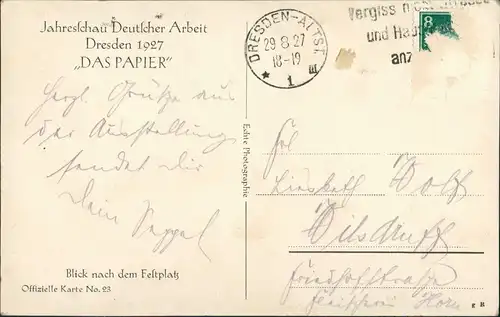 Jahresschau Deutscher Arbeit
Dresden 1927
„DAS PAPIER“
Herzl. Grüße aus
der Ausstellung
sendet Dir
Dein Seppel
Blick nach dem Festplatz
Offizielle Karte No. 23
Echte Photographie
DRESDEN-ALTST.
29.8.27
18-19
* 1 m
Vergiss nicht Strasse
und Hau
anz
8
Frl
Liesbeth Wolf
Wilsdruff
Friedhofstraße
Fleischerei Horn
g R